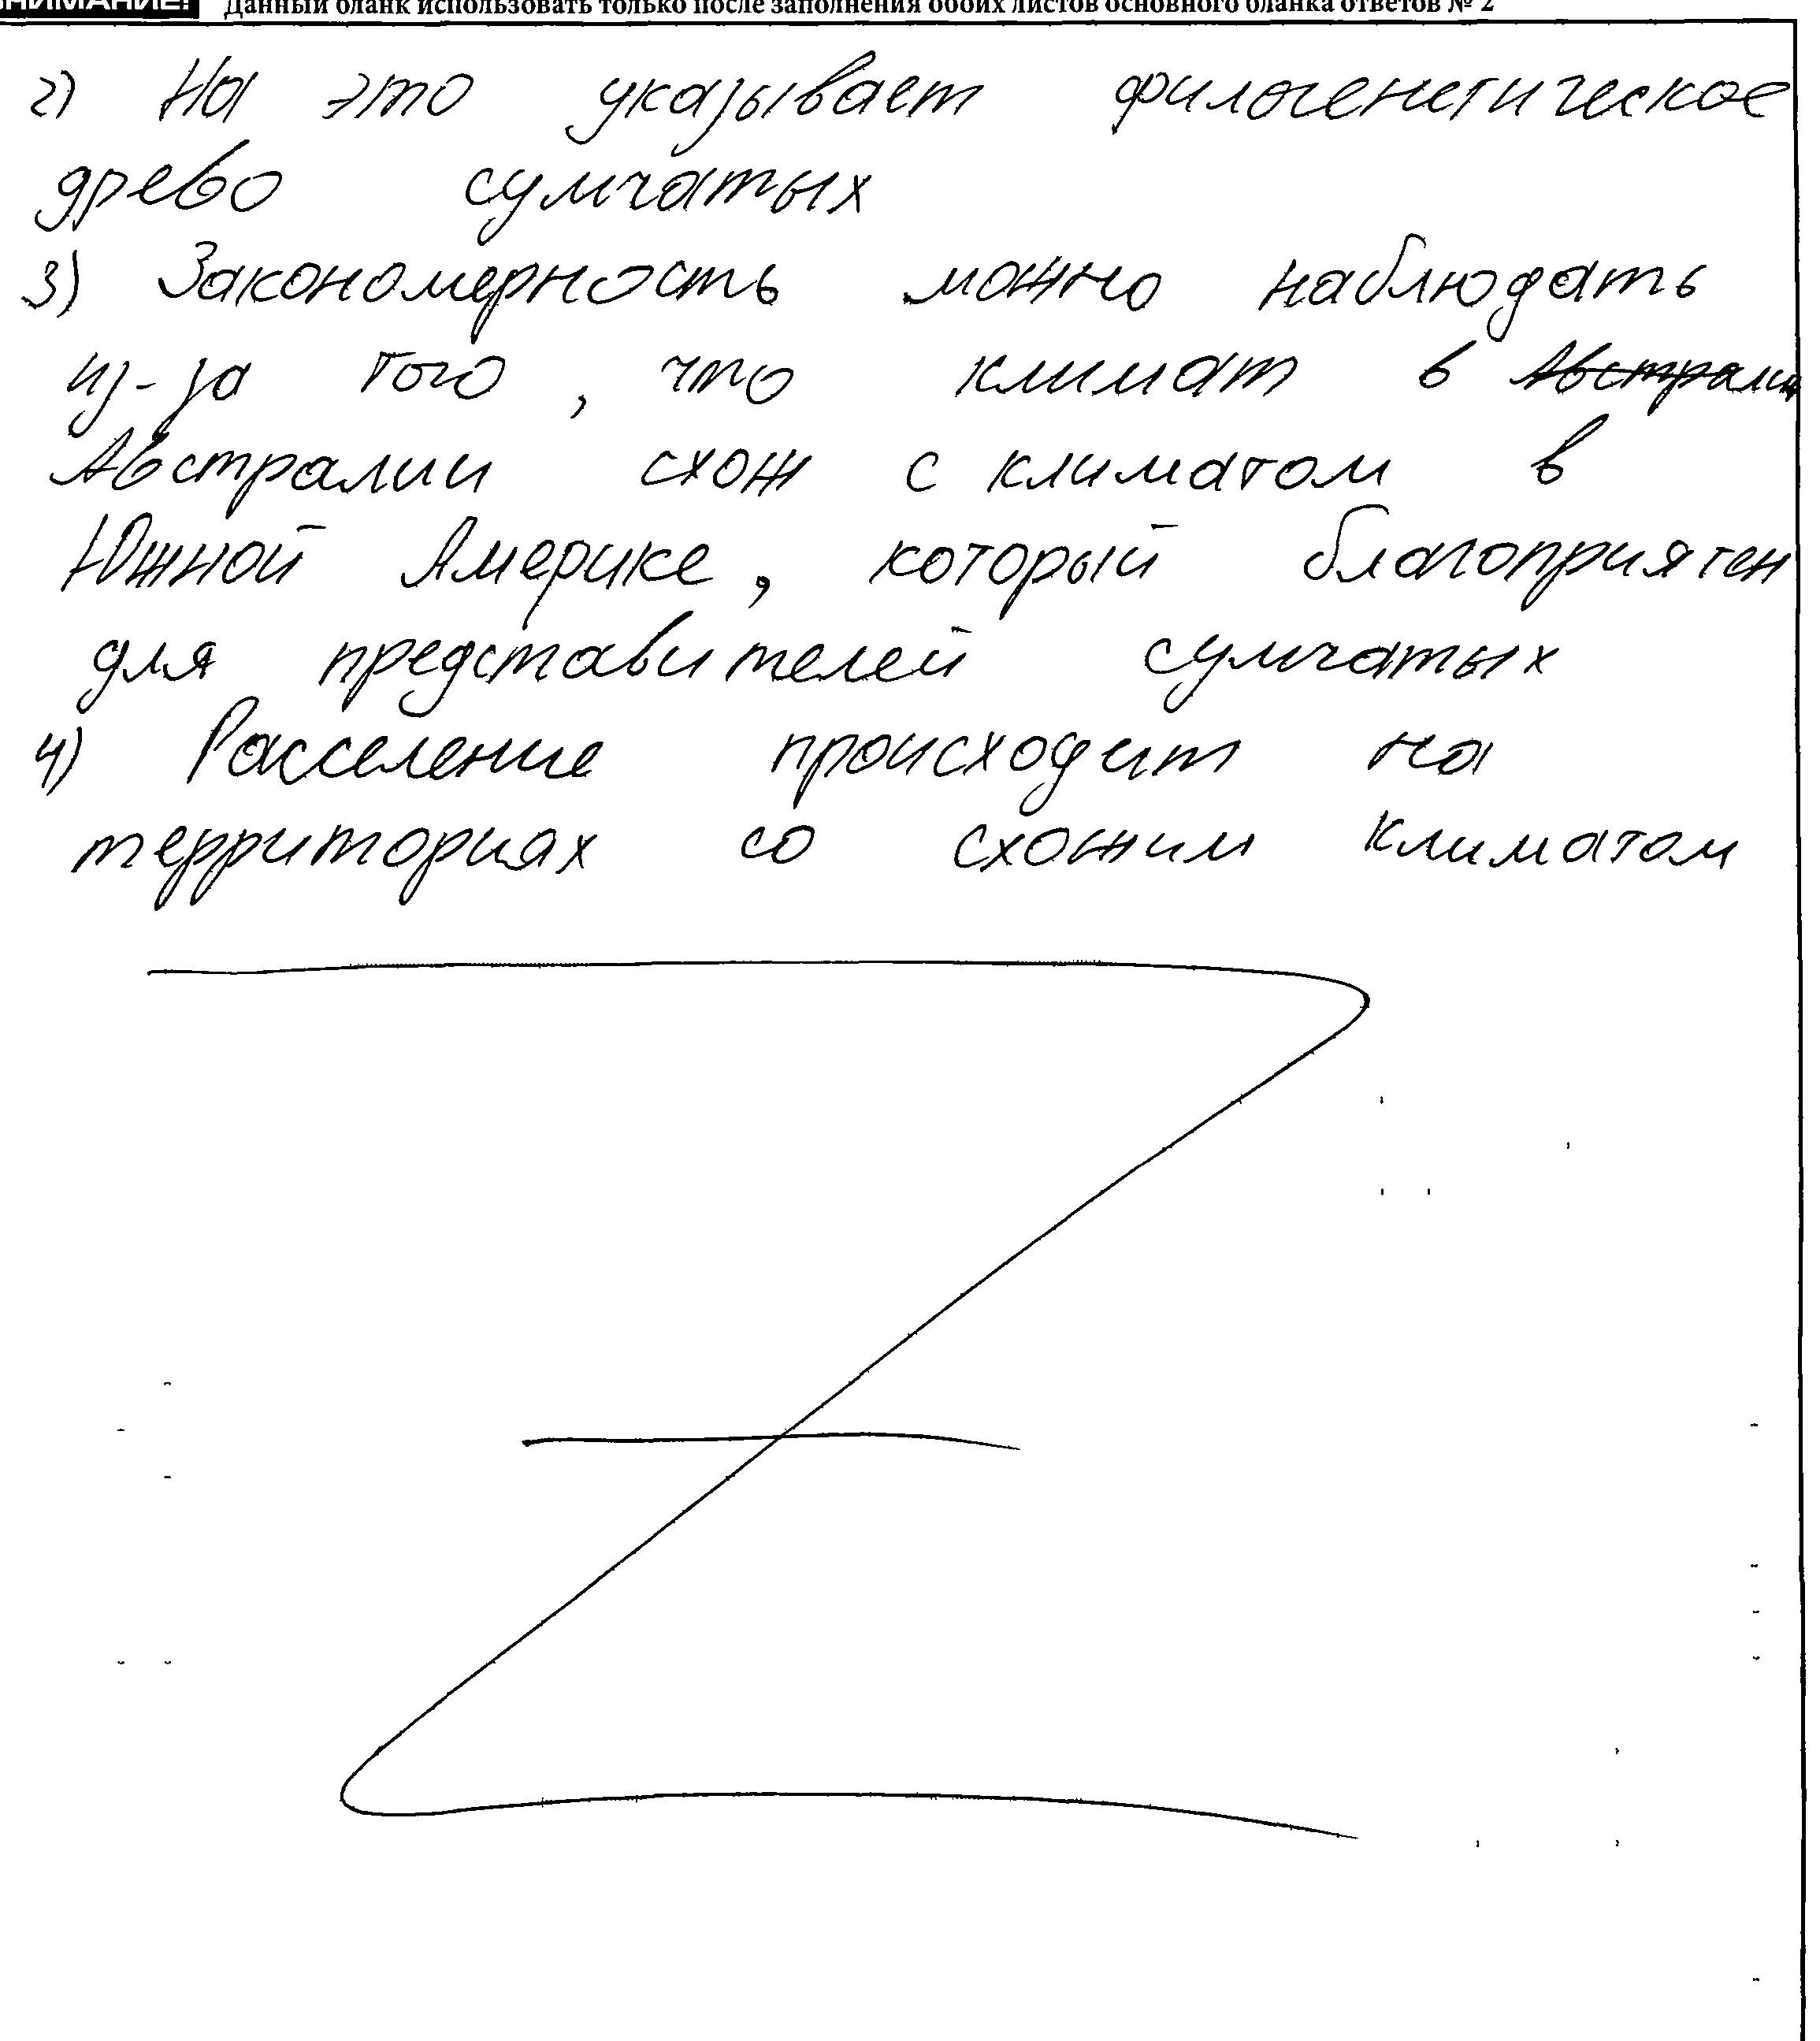 ВНИМАНИЕ! Данный бланк использовать только после заполнения обоих листов основного бланка ответов № 2
2) На это указывает филогенетическое
древо сумчатых
3) Закономерность можно наблюдать
из-за того, что климат в Австралии
Австралии схож с климатом в
Южной Америке, который благоприятен
для представителей сумчатых
4) Расселение происходит на
территориях со схожим климатом